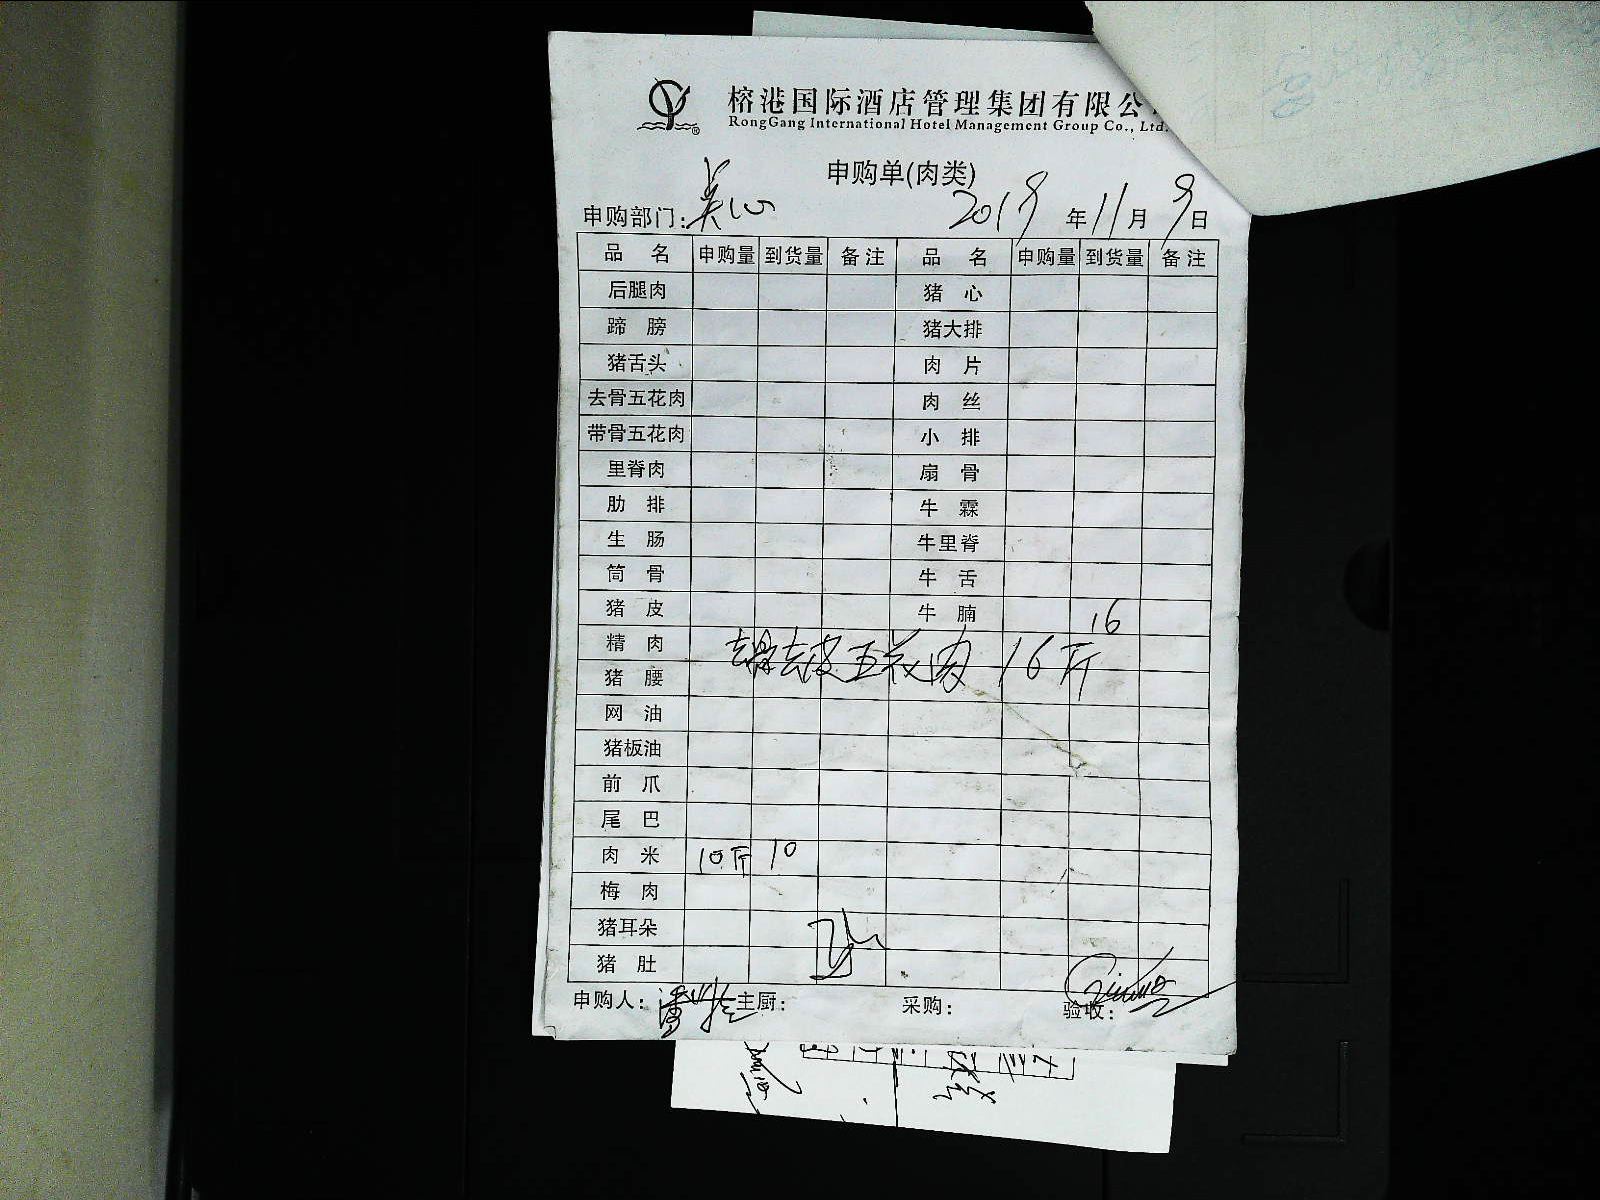 榕港国际酒店管理集团有限公
RongGang International Hotel Management Group Co., Ltd.
申购单(肉类)
申购部门: 2019 年 11 月 9 日
品名 申购量 到货量 备注 品名 申购量 到货量 备注
后腿肉 猪心
蹄膀 猪大排
猪舌头 肉片
去骨五花肉 肉丝
带骨五花肉 小排
里脊肉 扇骨
肋排 牛霖
生肠 牛里脊
筒骨 牛舌
猪皮 牛腩 16
精肉
去骨去皮五花肉 16斤
猪腰
网油
猪板油
前爪
尾巴
肉米 10斤 10
梅肉
猪耳朵
猪肚
申购人: 主厨: 采购: 验收: